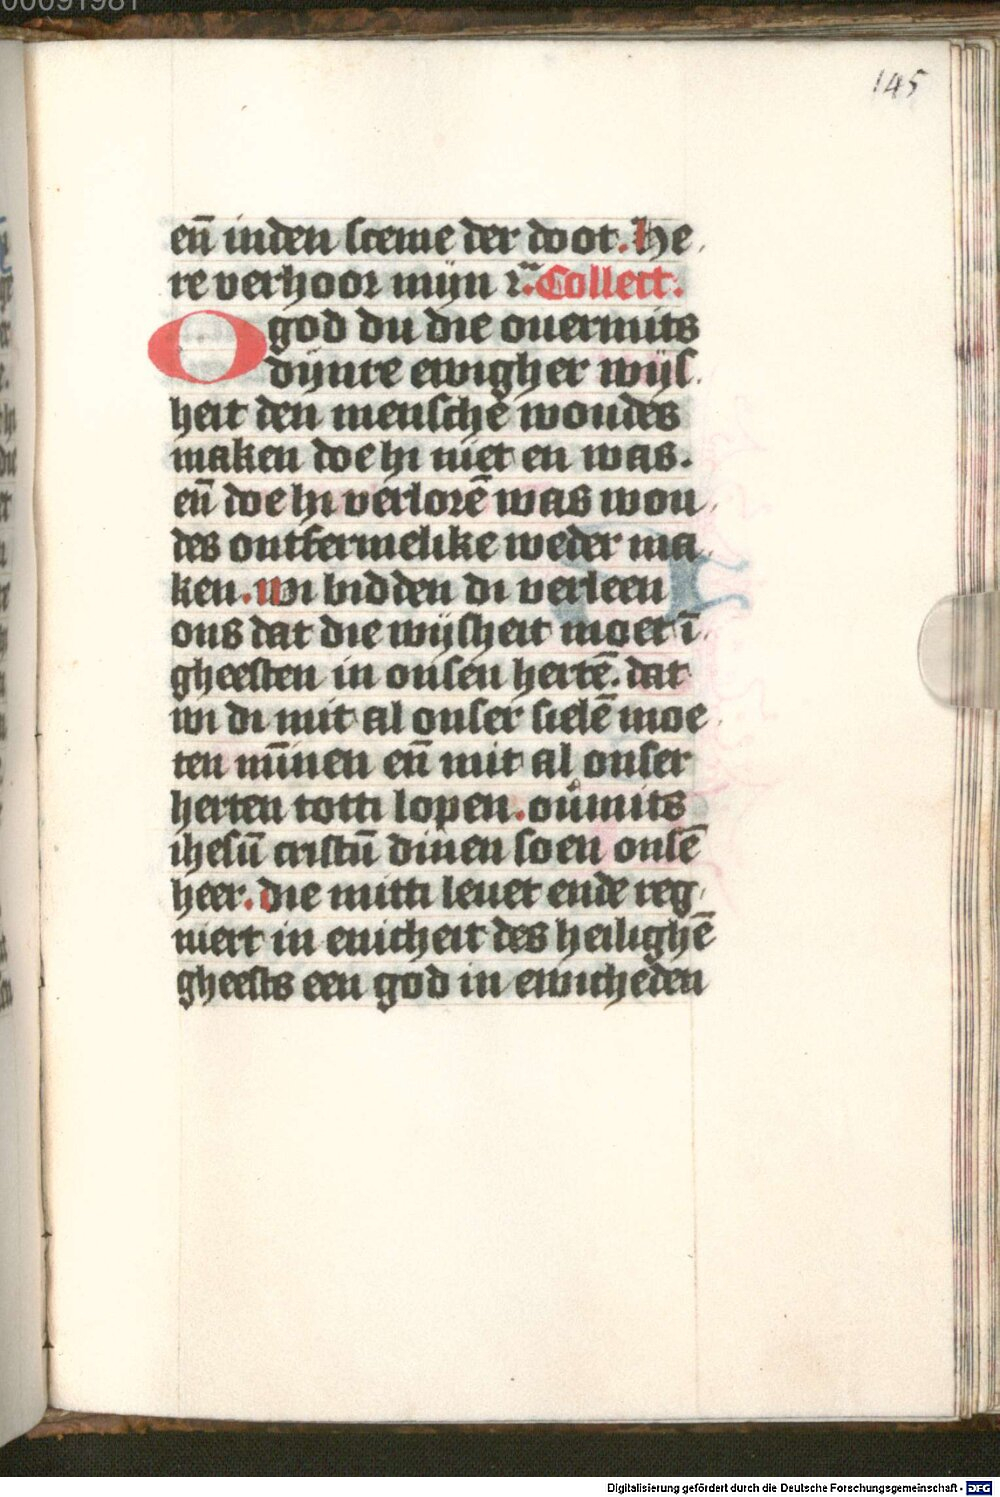 00091981
145
en̄ inden sceme der doot. He
re verhoor mijn ꝛ̃. Collect.
O god du die ouermits
dijnre ewigher wijs
heit den menschē woudes
maken doe hi niet en was.
en̄ doe hi verlorē was wou
des ontfermelike weder ma
ken. Wi bidden di verleen
ons dat die wijsheit moet ī
gheesten in onsen hertē. dat
wi di mit al onser sielē moe
ten mīnen en̄ mit al onser
herten totti lopen. ou̇mits
ihesū cristū dinen soen onsē
heer. die mitti leuet ende reg
niert in enicheit des heilighē
gheests een god in ewicheden
Digitalisierung gefördert durch die Deutsche Forschungsgemeinschaft - DFG